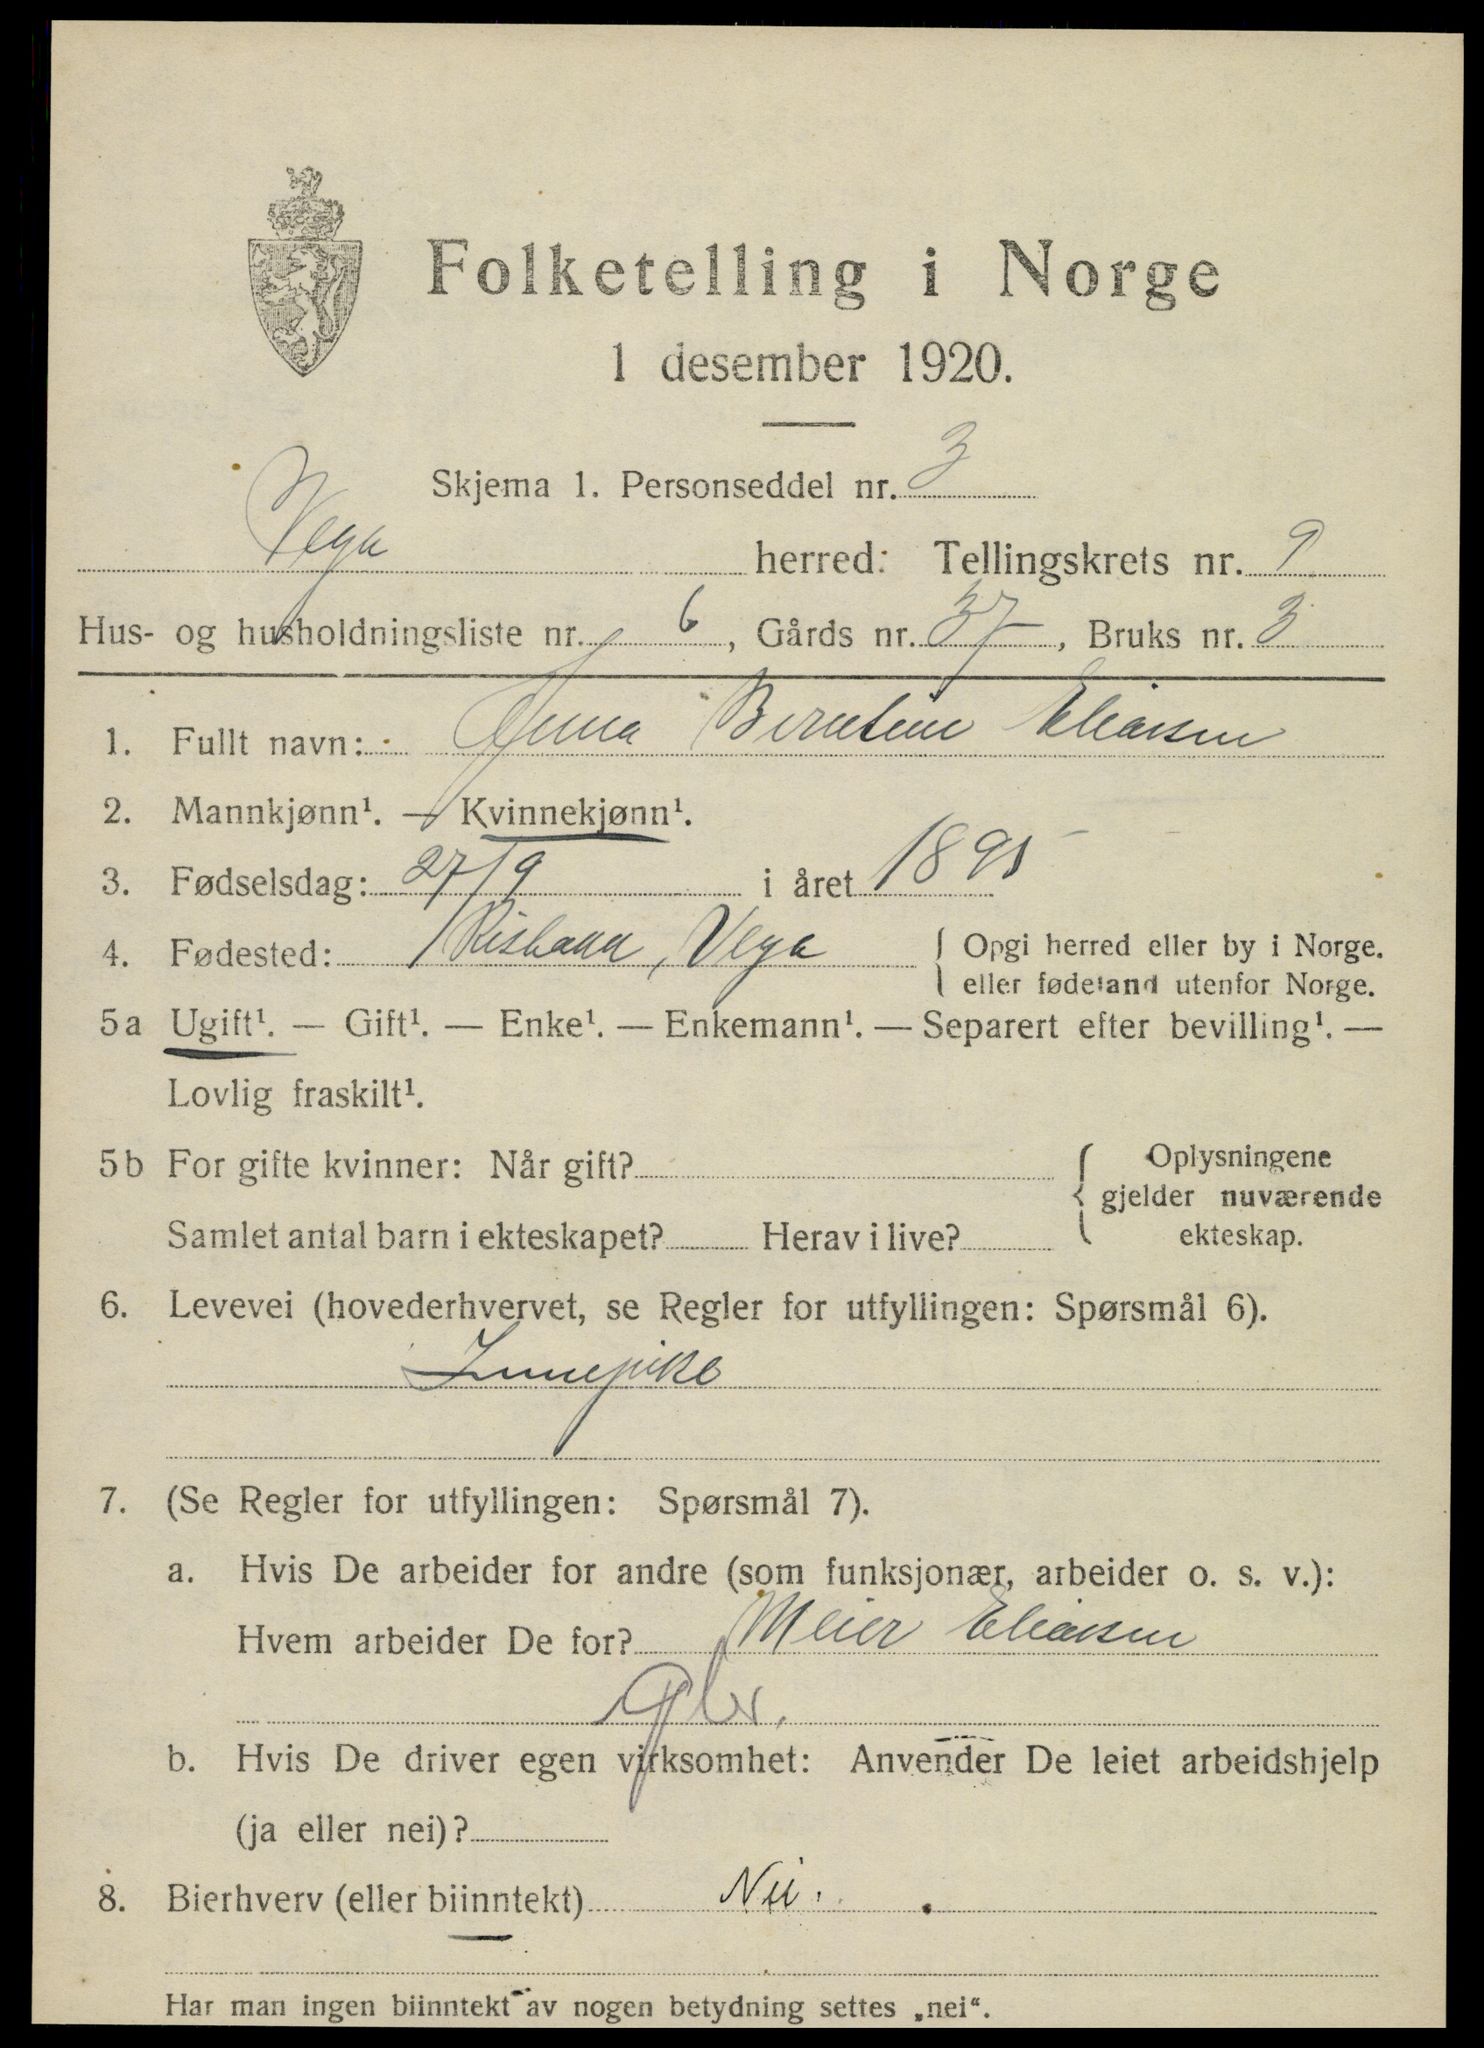 Folketelling i Norge
1 desember 1920.
Skjema 1. Personseddel nr. 3
Vega herred: Tellingskrets nr. 9
Hus- og husholdningsliste nr. 6, Gårds nr. 37, Bruks nr. 3
1. Fullt navn: Anna Berntine Eliasen
2. Mannkjønn¹. — Kvinnekjønn¹.
3. Fødselsdag: 27/9 i året 1895
4. Fødested: Vega { Opgi herred eller by i Norge.
eller fødeland utenfor Norge.
5a Ugift¹. — Gift¹. — Enke¹. — Enkemann¹. — Separert efter bevilling¹. —
Lovlig fraskilt¹.
5b For gifte kvinner: Når gift? { Oplysningene
gjelder nuværende
Samlet antal barn i ekteskapet? Herav i live? ekteskap.
6. Levevei (hovederhvervet, se Regler for utfyllingen: Spørsmål 6).
Innepike
7. (Se Regler for utfyllingen: Spørsmål 7).
a. Hvis De arbeider for andre (som funksjonær, arbeider o. s. v.):
Hvem arbeider De for? Meier Eliasen
b. Hvis De driver egen virksomhet: Anvender De leiet arbeidshjelp
(ja eller nei)?
8. Bierhverv (eller biinntekt) Nei.
Har man ingen biinntekt av nogen betydning settes „nei“.